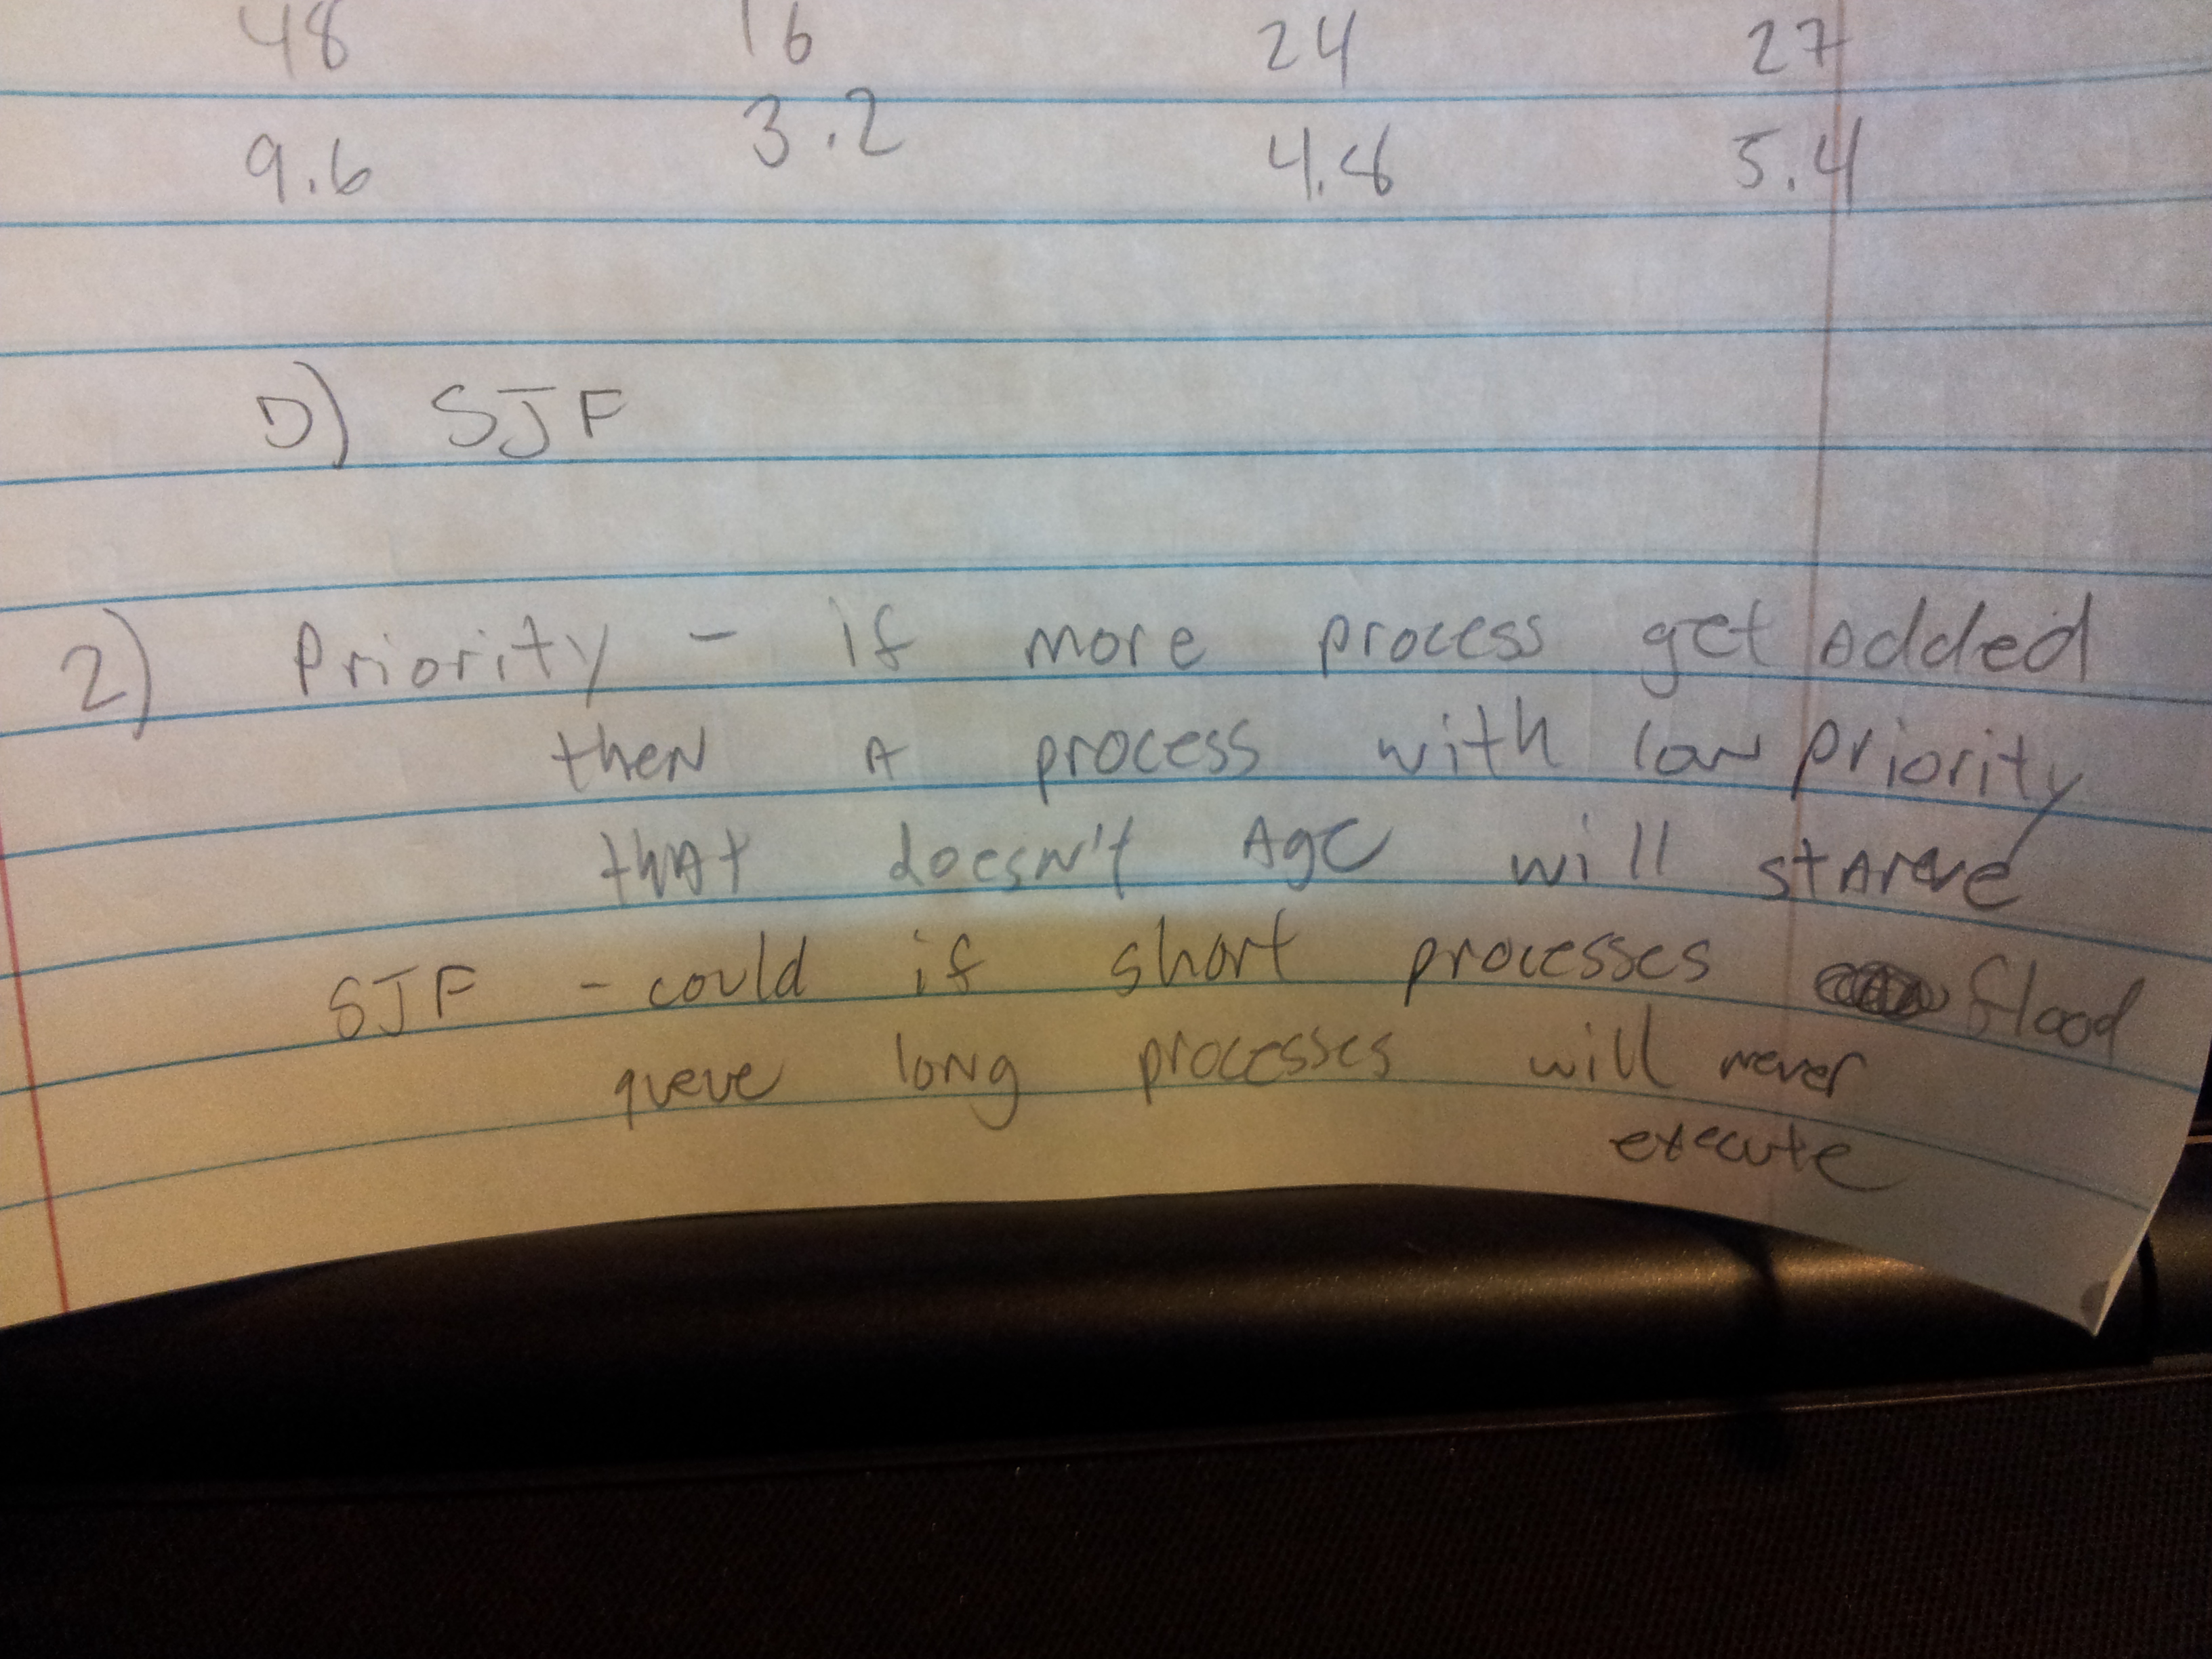 48 16 24 27
9.6 3.2 4.8 5.4
D) SJF
2) Priority - if more process get Added
then A process with low priority
that doesn't Age will starve
SJF - could if short processes flood
queue long processes will never
execute